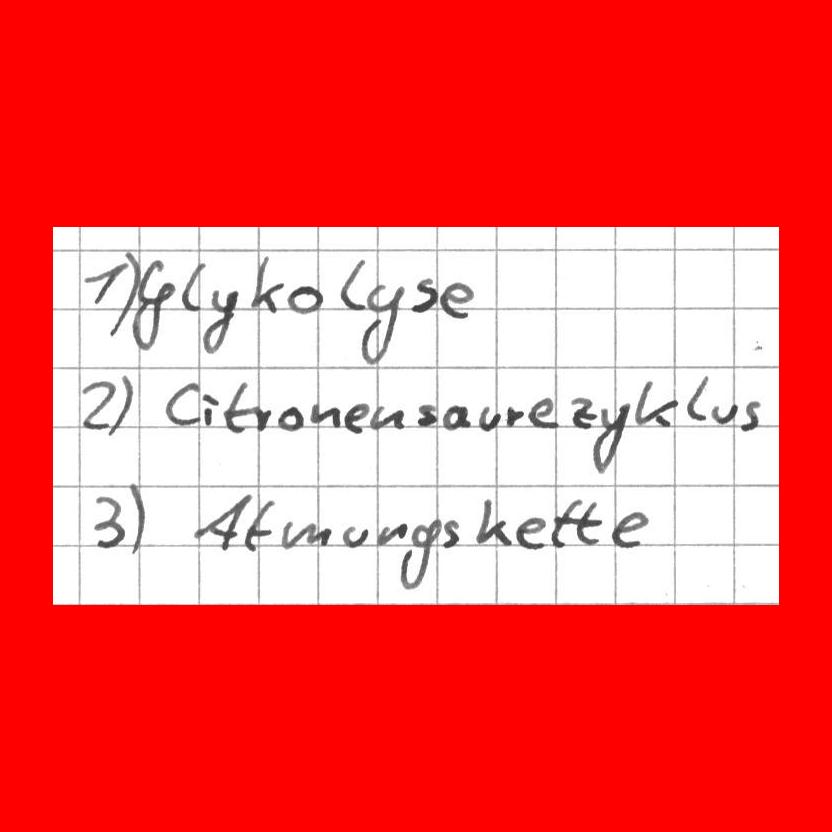 1) Glykolyse
2) Citronensaurezyklus
3) Atmungskette